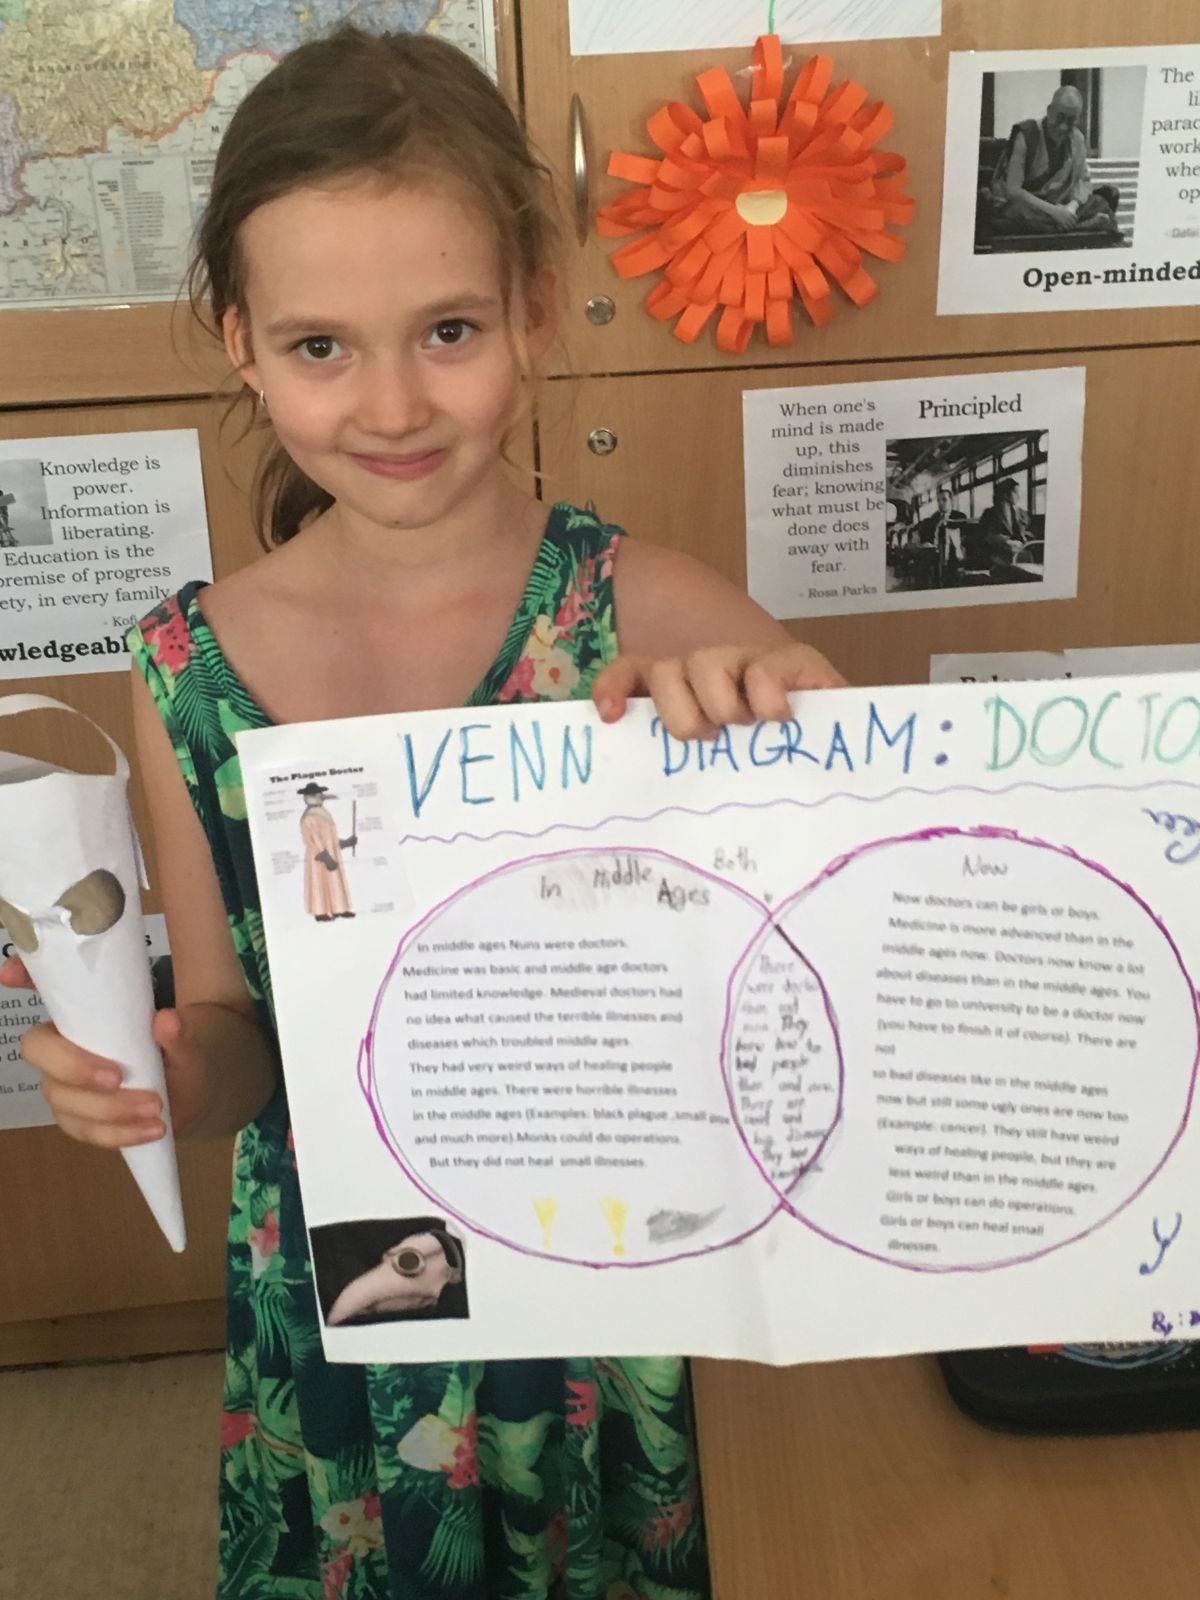 The
li
parad
work
whe
op
Open-minded
When one's
mind is made
up, this
diminishes
fear; knowing
what must be
done does
away with
fear.
- Rosa Parks
Principled
Knowledge is
power.
Information is
liberating.
Education is the
premise of progress
ety, in every family
- Kofi
wledgeabl
VENN DIAGRAM: DOCTO
The Plague Doctor
In Middle Ages
Both
Now
In middle ages Nuns were doctors.
Medicine was basic and middle age doctors
had limited knowledge. Medieval doctors had
no idea what caused the terrible illnesses and
diseases which troubled middle ages.
They had very weird ways of healing people
in middle ages. There were horrible illnesses
in the middle ages (Examples: black plague, small pox
and much more).Monks could do operations.
But they did not heal small illnesses.
There
were
then and
They
people
then and now.
There are
and
They had
Now doctors can be girls or boys.
Medicine is more advanced than in the
middle ages now. Doctors now know a lot
about diseases than in the middle ages. You
have to go to university to be a doctor now
(you have to finish it of course). There are
not
so bad diseases like in the middle ages
now but still some ugly ones are now too
(Example: cancer). They still have weird
ways of healing people, but they are
less weird than in the middle ages.
Girls or boys can do operations.
Girls or boys can heal small
illnesses.
By: